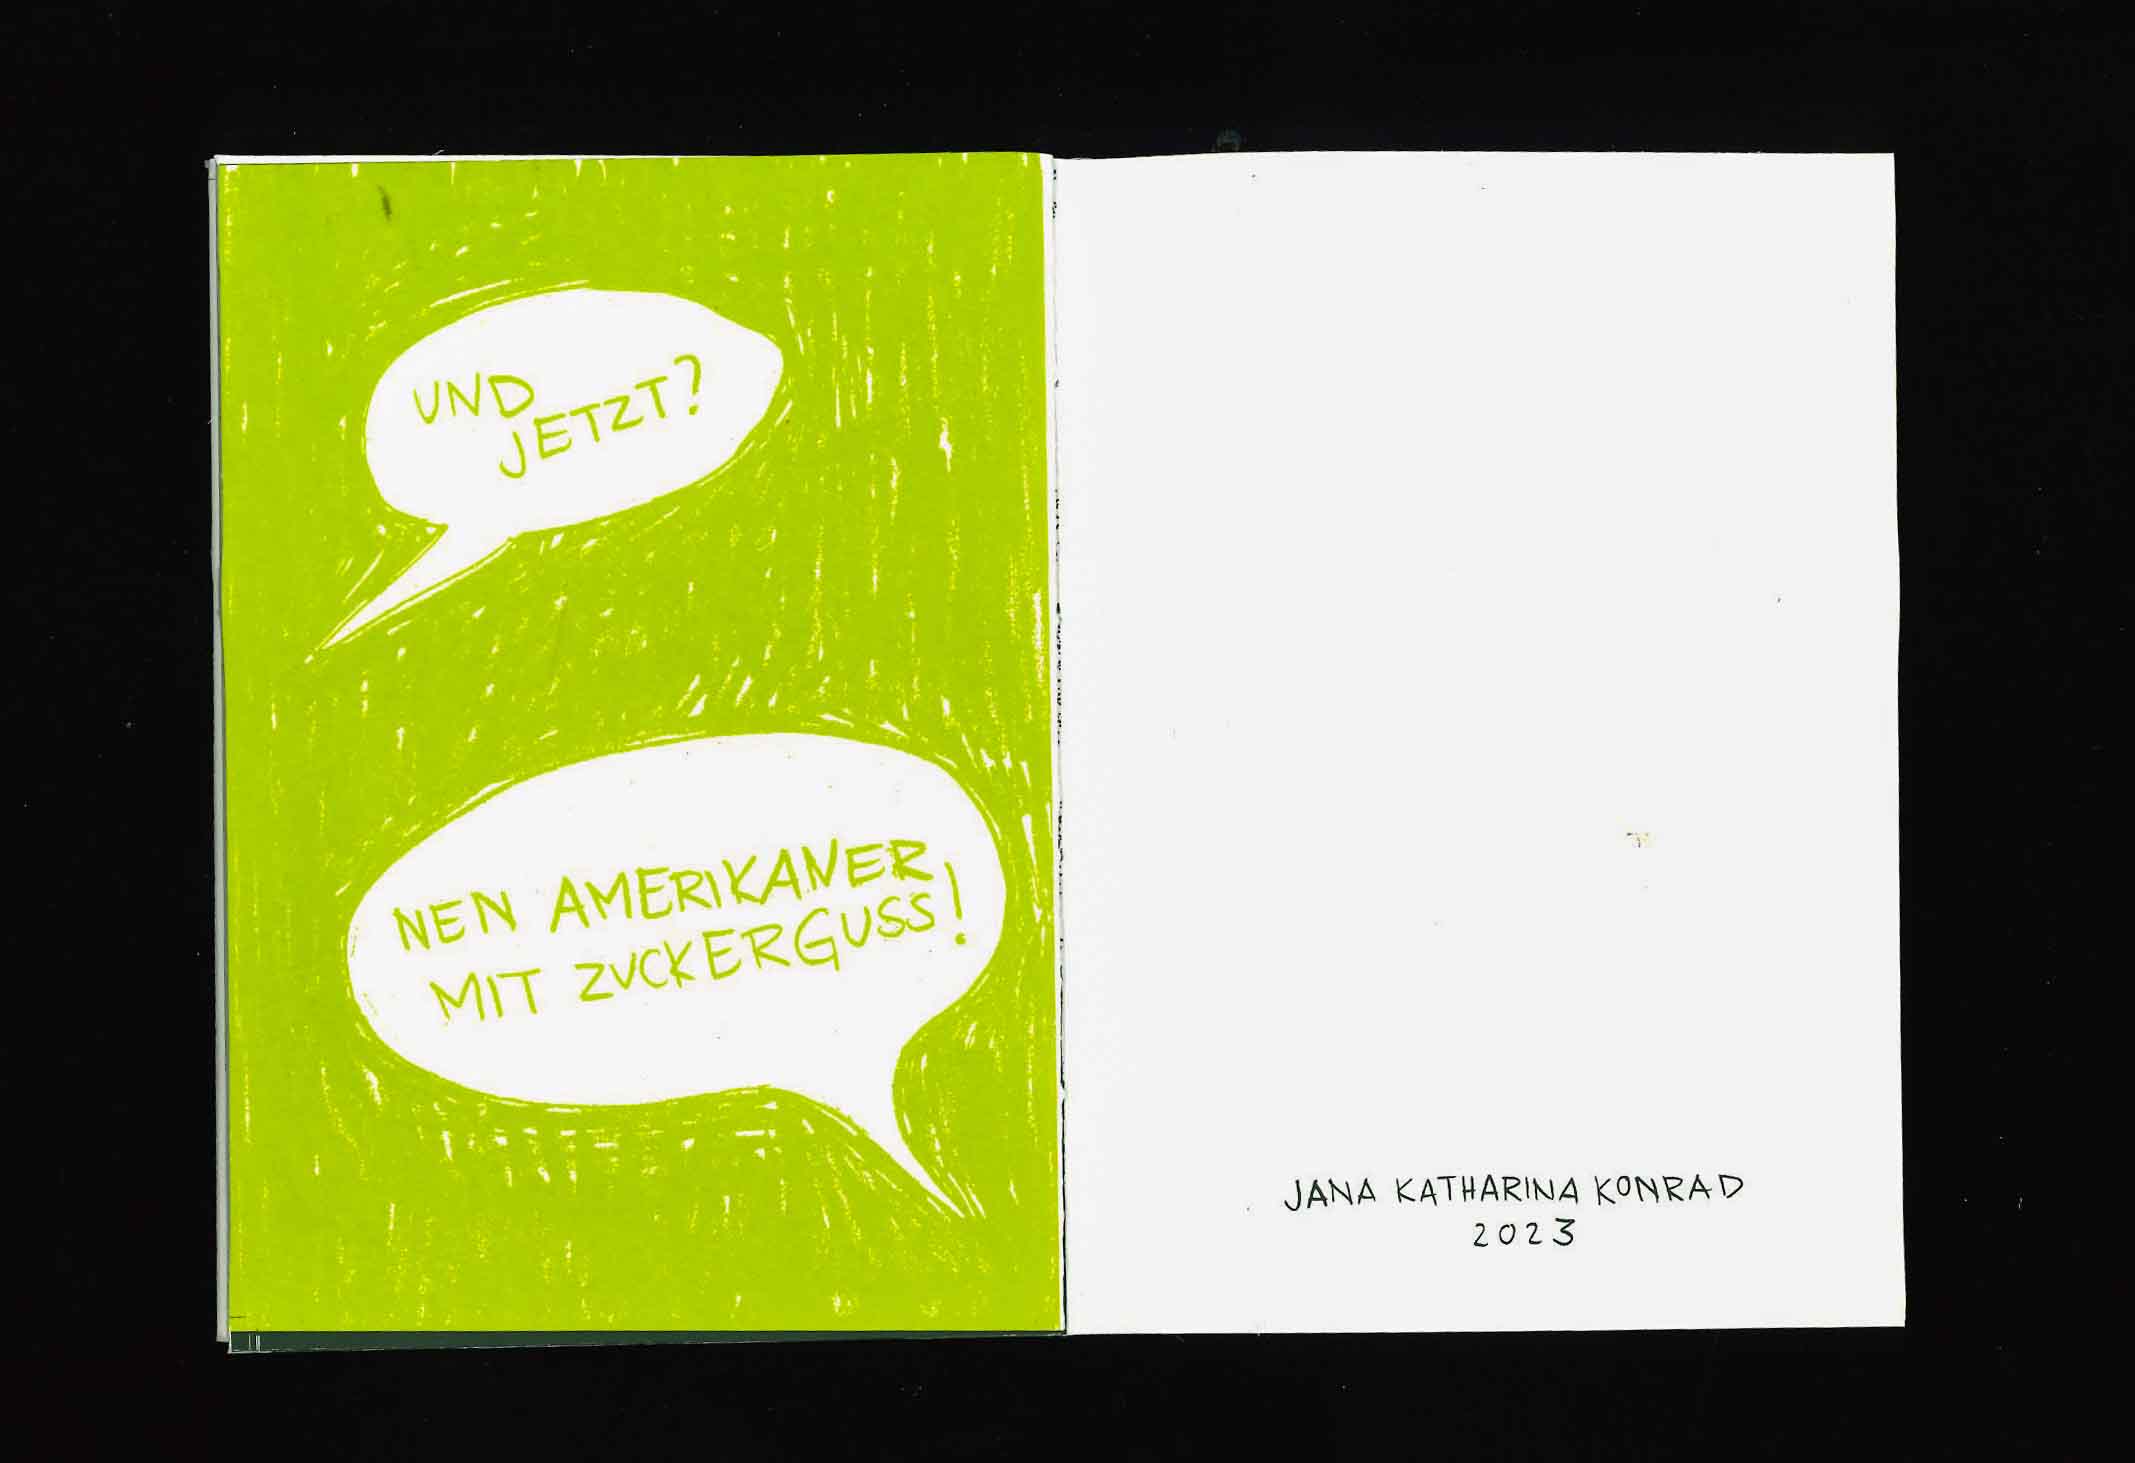 UND
JETZT?
NEN AMERIKANER
MIT ZUCKERGUSS!
JANA KATHARINA KONRAD
2023